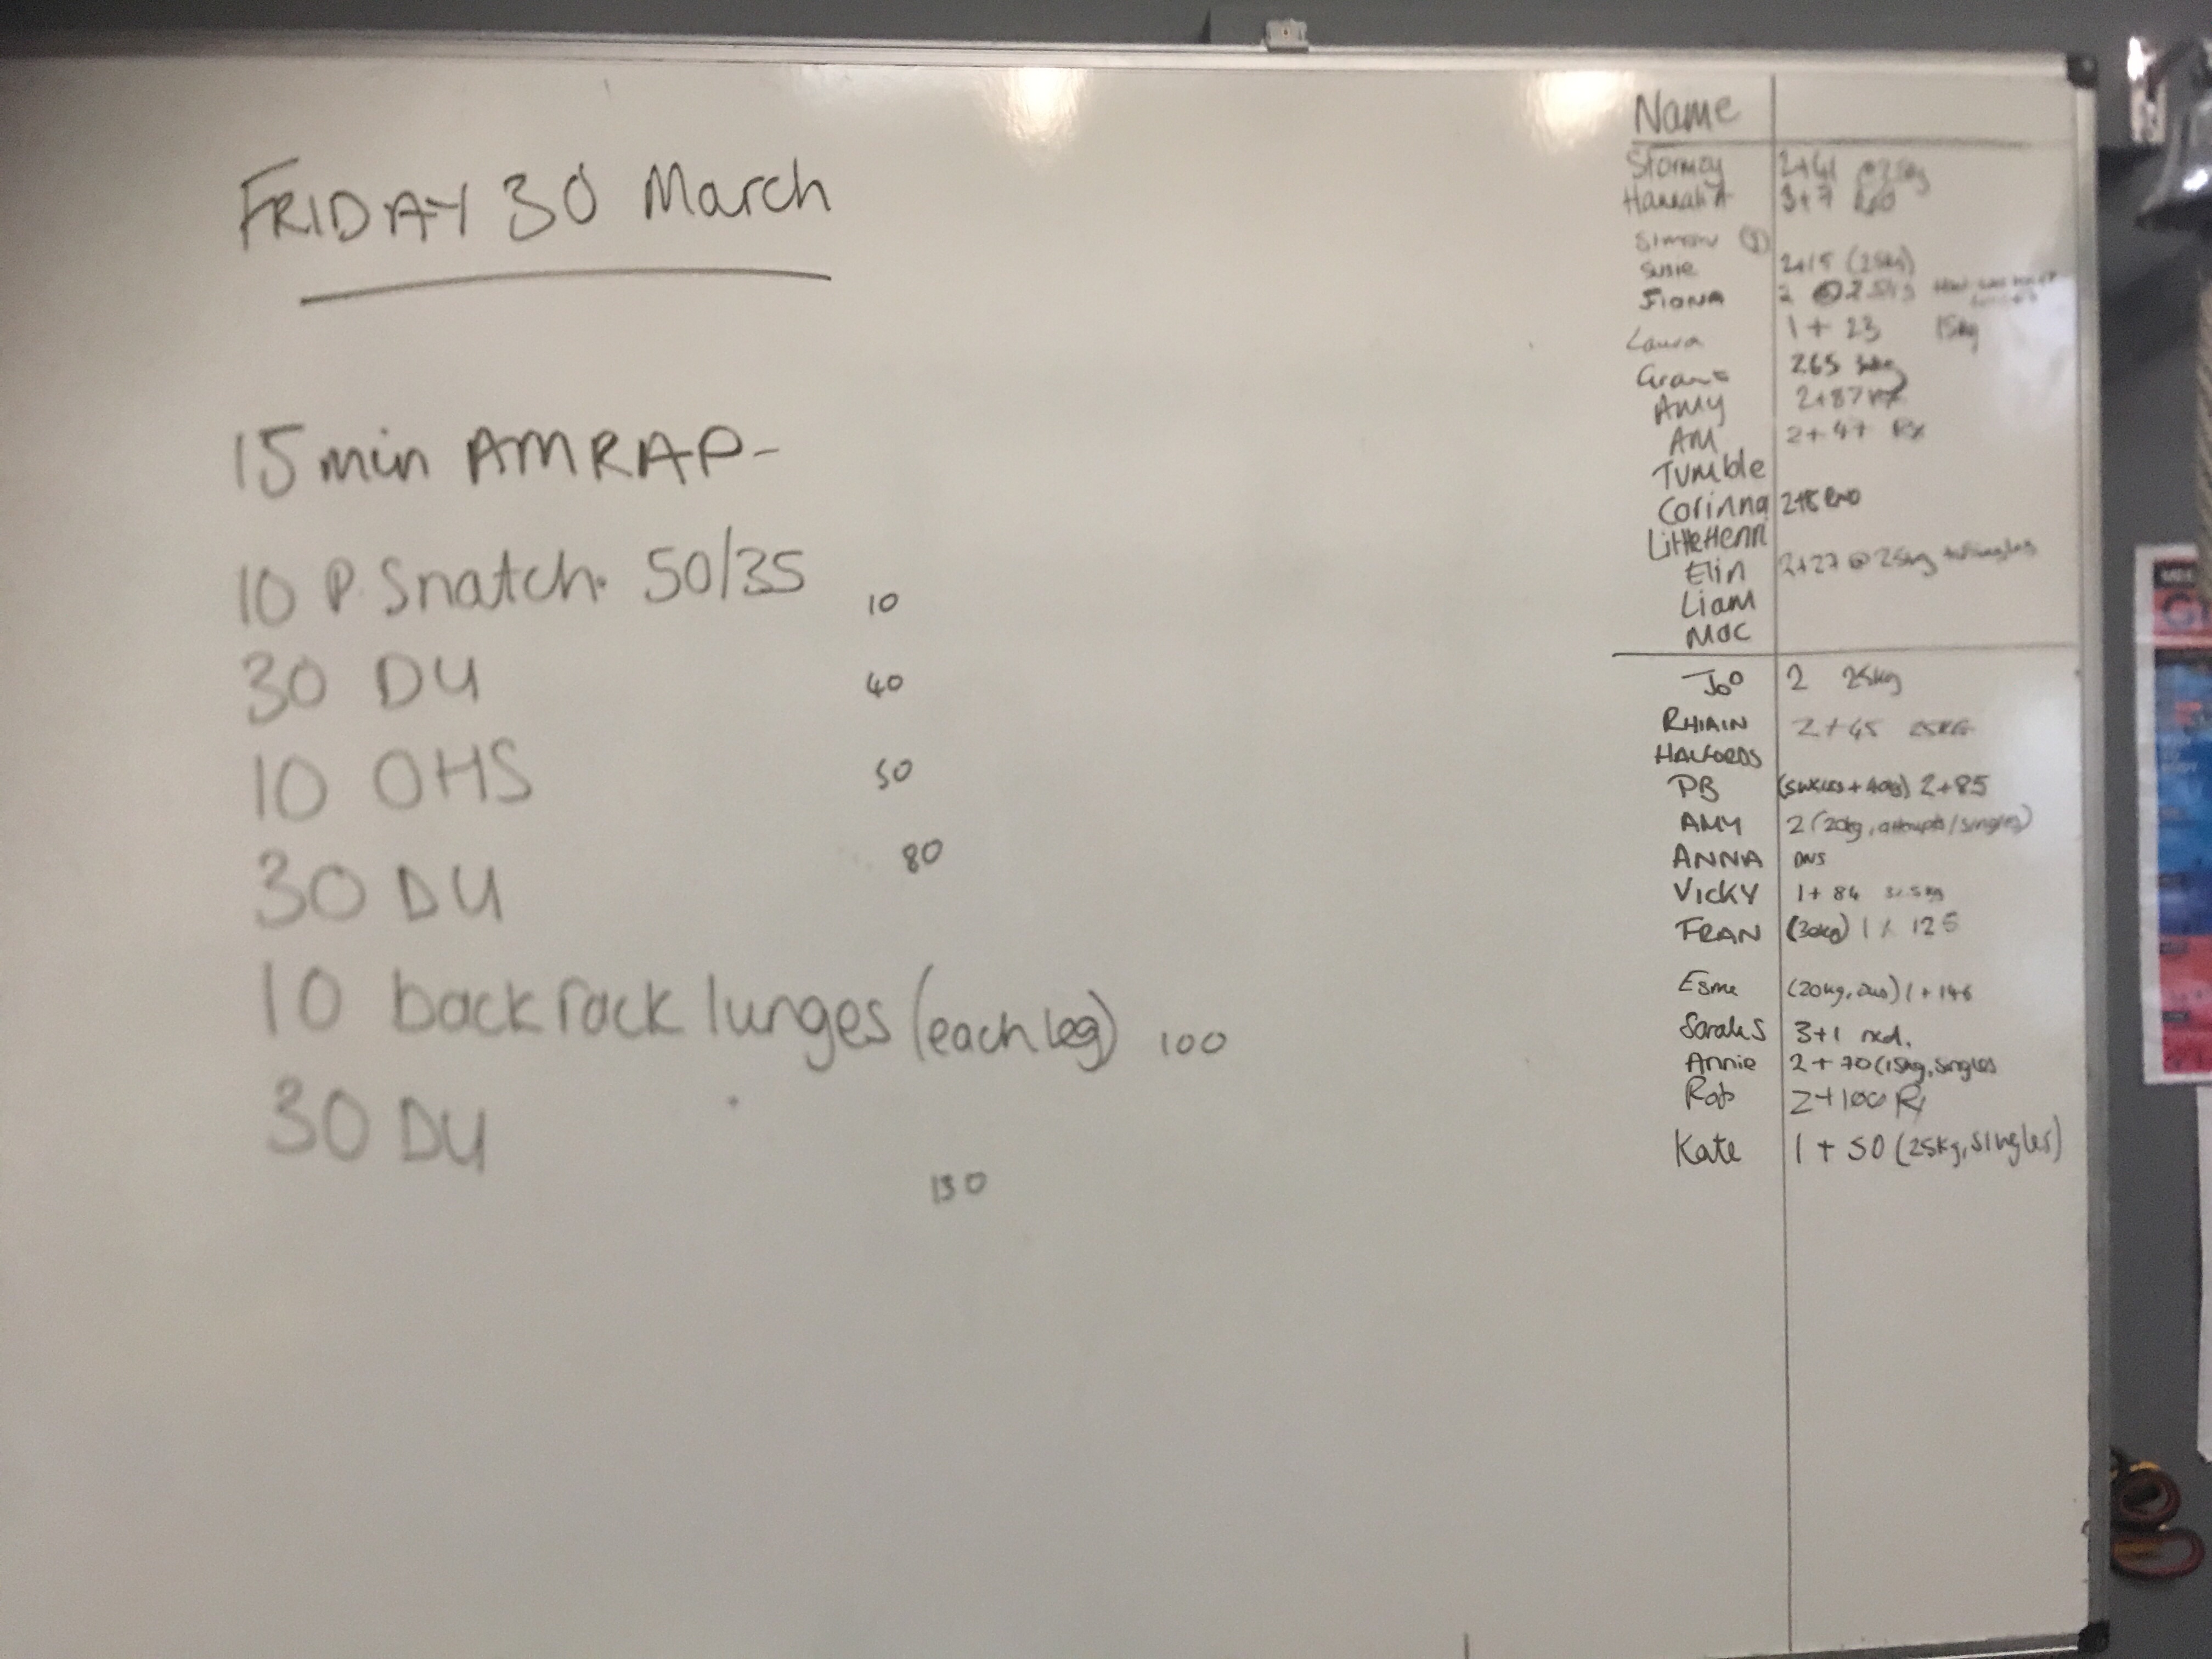 FRIDAY 30 March
15 min AMRAP-
10 P. Snatch. 50/35 10
30 DU 40
10 OHS 50
30 DU 80
10 back rack lunges (each leg) 100
30 DU
130
Name
Stormey 2+41
Hannah 3+7
Simon
Susie 2+15 (25kg)
FIONA 2
Laura 1 + 23 15kg
Grant 265
AMY 2+87 RX
AM 2+47 RX
TUMBLE
Corinna
Little Henri
Elin 2+27 @ 25kg
Liam
Mac
Joo 2 25kg
RHIAIN 2+45 25KG
HALFORDS
PB 2+85
AMY 2 (20kg, attempts/singles)
ANNA DNS
VICKY 1+ 84
FRAN (30kg) 1 125
Esme (20kg, dus) 1 + 146
Sarah S 3+1 rxd.
Annie 2 + 70 (15kg, singles
Rob 2+100 Rx
Kate 1 + 50 (25kg, singles)